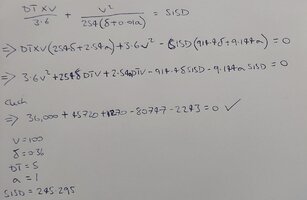 DT XV / 3.6 + V² / 254(δ+0.01a) = SISD
⇒ DTXV(254δ+2.54a)+3.6v² - SISD(914.4δ+9.144a) = 0
⇒ 3.6v²+254δDTV+2.54aDTV-914.4δSISD-9.144aSISD=0
⇒ 36,000+45720+1270-80747-2243=0 ✓
V=100
δ=0.36
DT=5
a=1
SISD=245.295